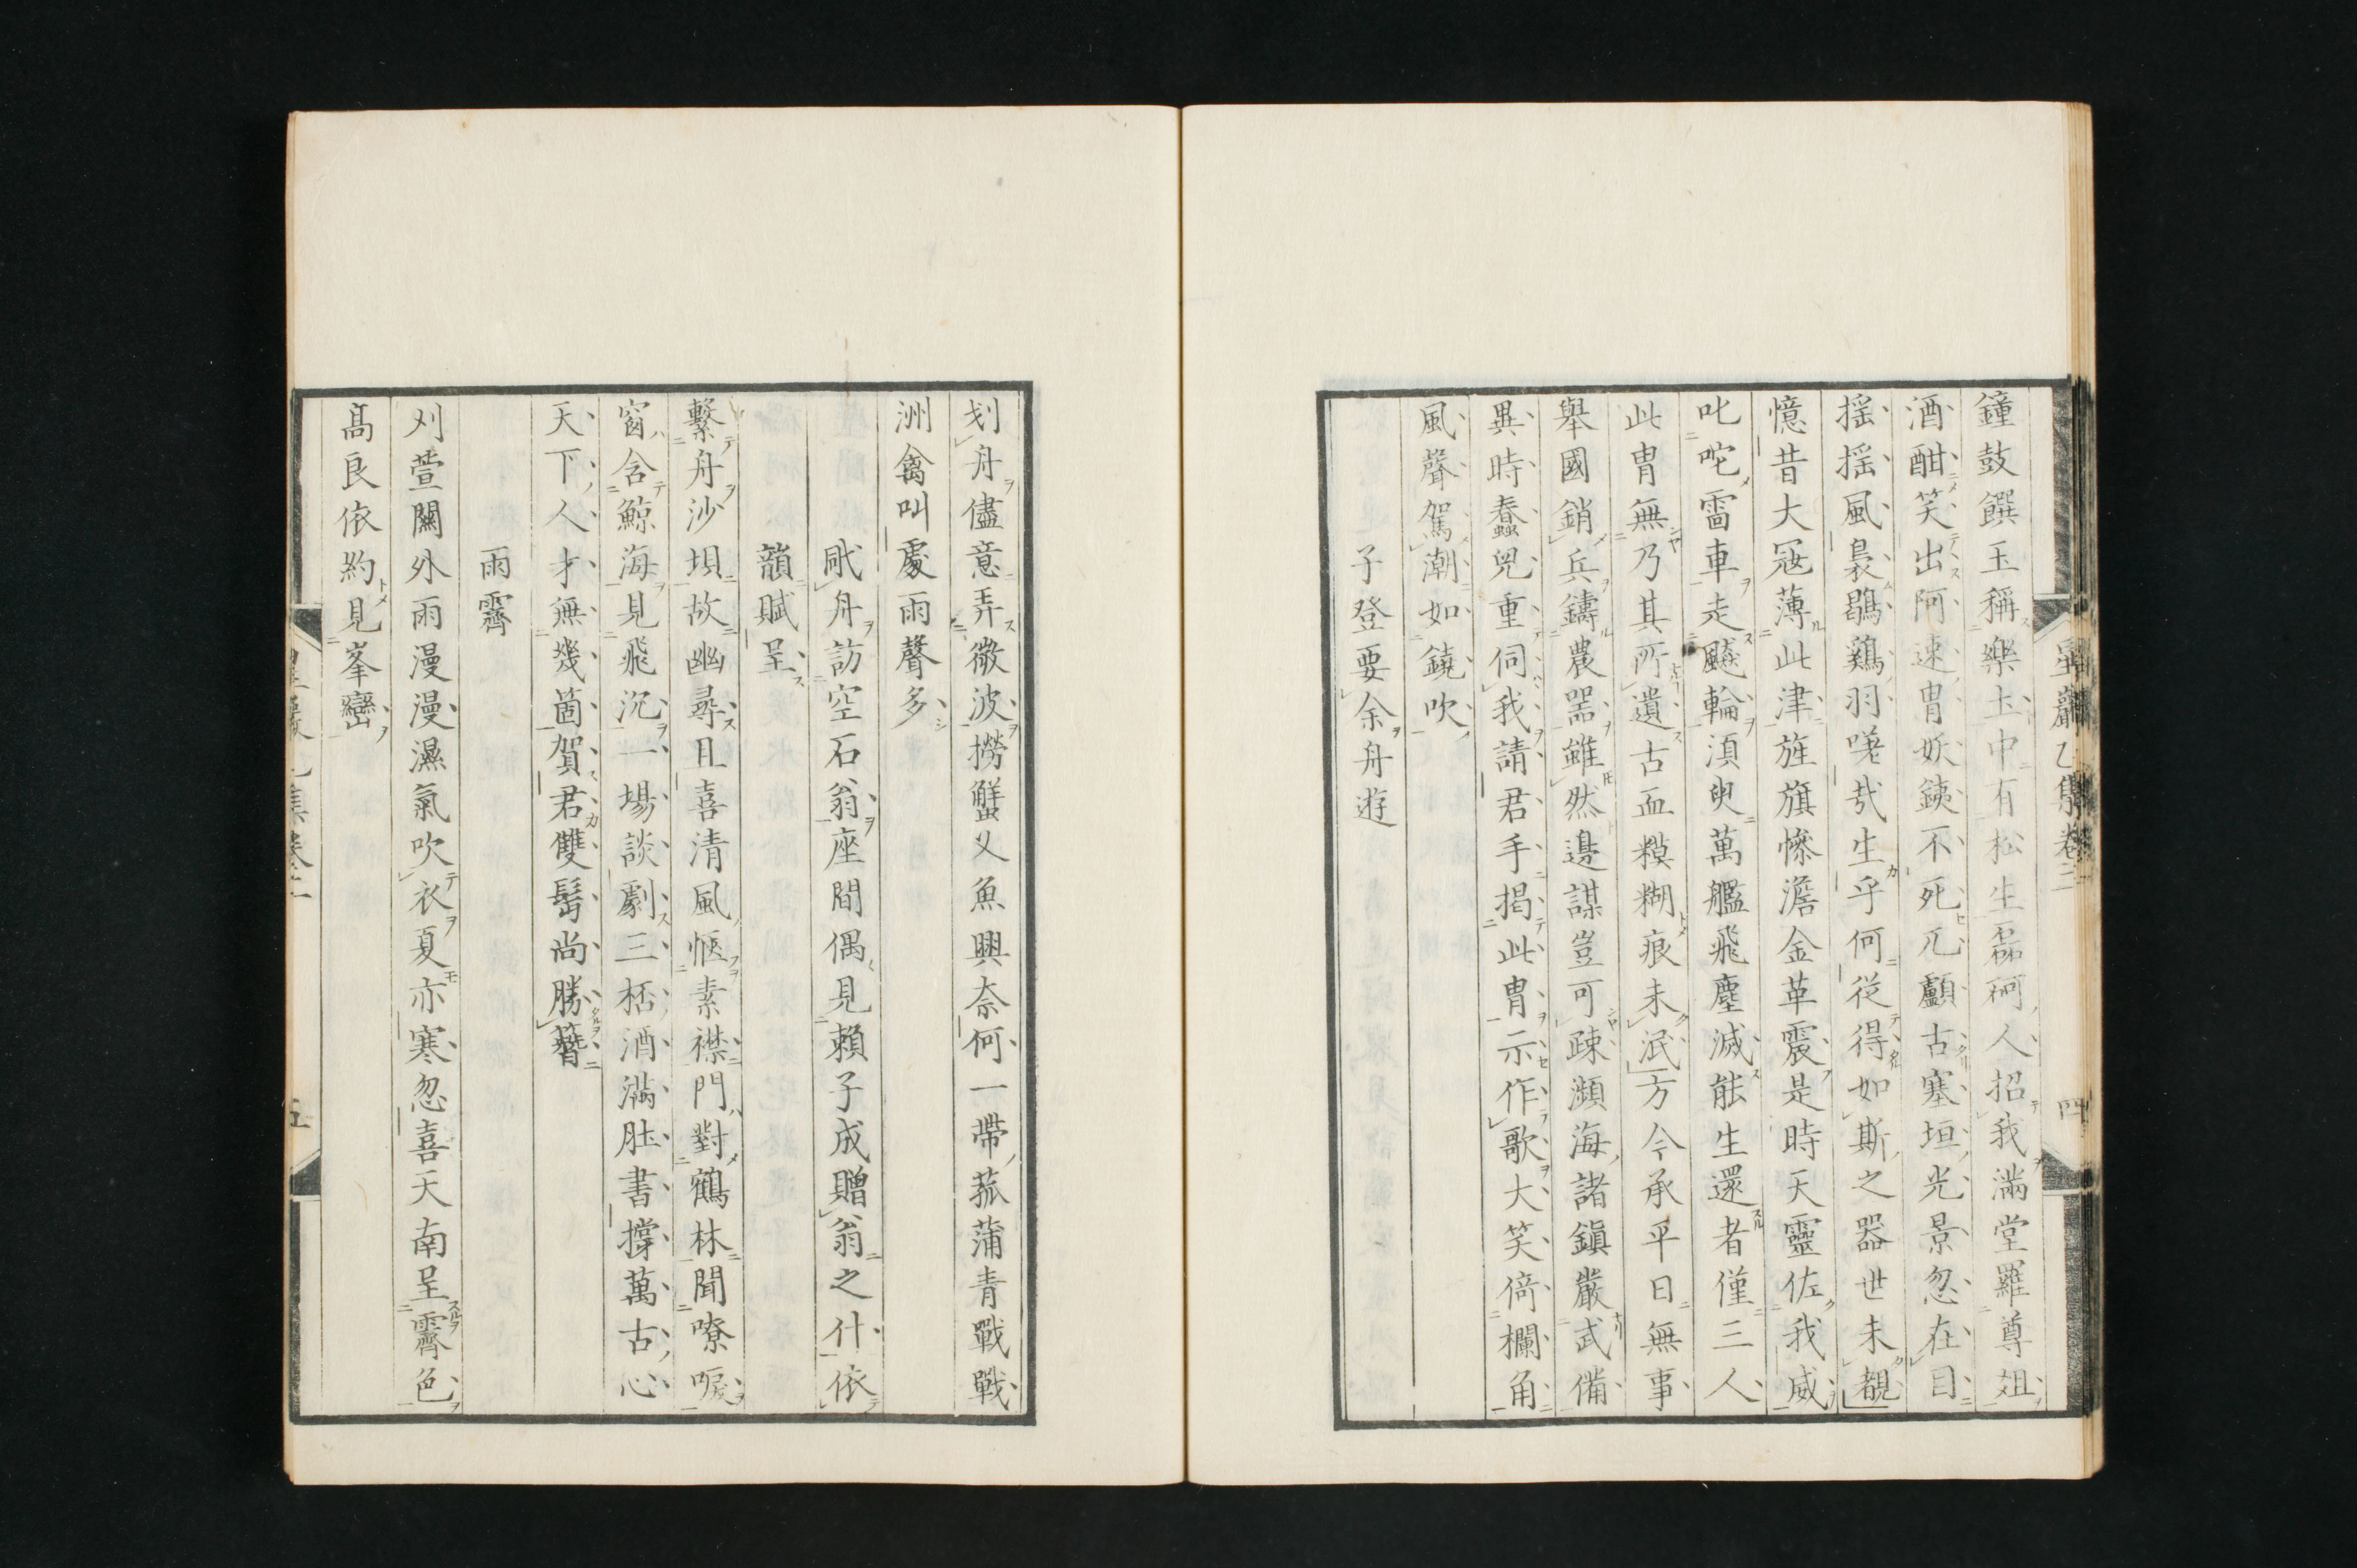 星巖乙集卷二
四
鐘鼓饌玉稱樂土中有松生磊砢人招我滿堂羅尊俎
酒酣笑出阿速冑妖銕不死兀顱古塞垣光景忽在目
搖搖風裊鶡鷄羽嘆哉生乎何從得如斯之器世未覩
憶昔大冦薄此津旌旗慘澹金革震是時天靈佐我威
叱咤雷車走飈輪湏臾萬艦飛塵滅能生還者僅三人
此冑無乃其所遺古血糢糊痕未泯方今承平日無事
舉國銷兵鑄農噐雖然邊謀豈可疎瀕海諸鎭嚴武備
異時蠢兒重伺我請君手掲此冑示作歌大笑倚欄角
風聲駕潮如鐃吹
子登要余舟遊
划舟儘意弄微波撈蟹乂魚興奈何一帶菰蒲青戰戰
洲禽叫處雨聲多
𦨣舟訪空石翁座間偶見賴子成贈翁之什依
韻賦呈
繫舟沙垻故幽尋且喜清風愜素襟門對鶴林聞嘹唳
窗含鯨海見飛沉一場談劇三桮酒滿肚書撐萬古心
天下人才無幾箇賀君雙髩尚勝簪
雨霽
刈萱關外雨漫漫濕氣吹衣夏亦寒忽喜天南呈霽色
髙良依約見峯巒
五